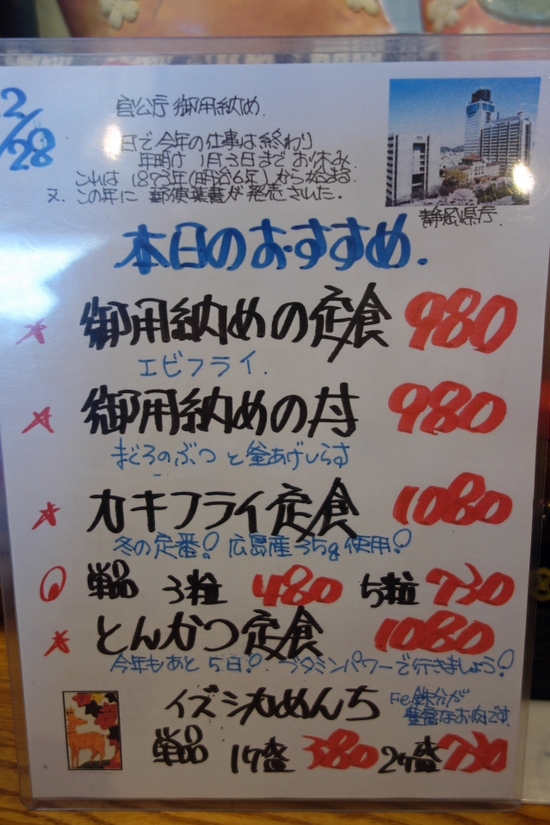 12/28
官公庁 御用納め.
日で今年の仕事は終わり
年明け 1月3日まで お休み
これは 1873年(明治6年)から始まる
又、この年に 郵便葉書が発売された.
静岡県庁.
本日のおすすめ.
御用納めの定食 980
エビフライ.
御用納めの丼 980
まぐろのぶつ と 釜あげしらす
カキフライ定食 1080
冬の定番! 広島産 35g 使用!
単品 3粒 480 5粒 730
とんかつ定食 1080
今年もあと 5日! ブタミンパワーで行きましょう!
イズシカめんち
Fe 鉄分が
豊富なお肉です
単品 1ケ盛 380 2ケ盛 730